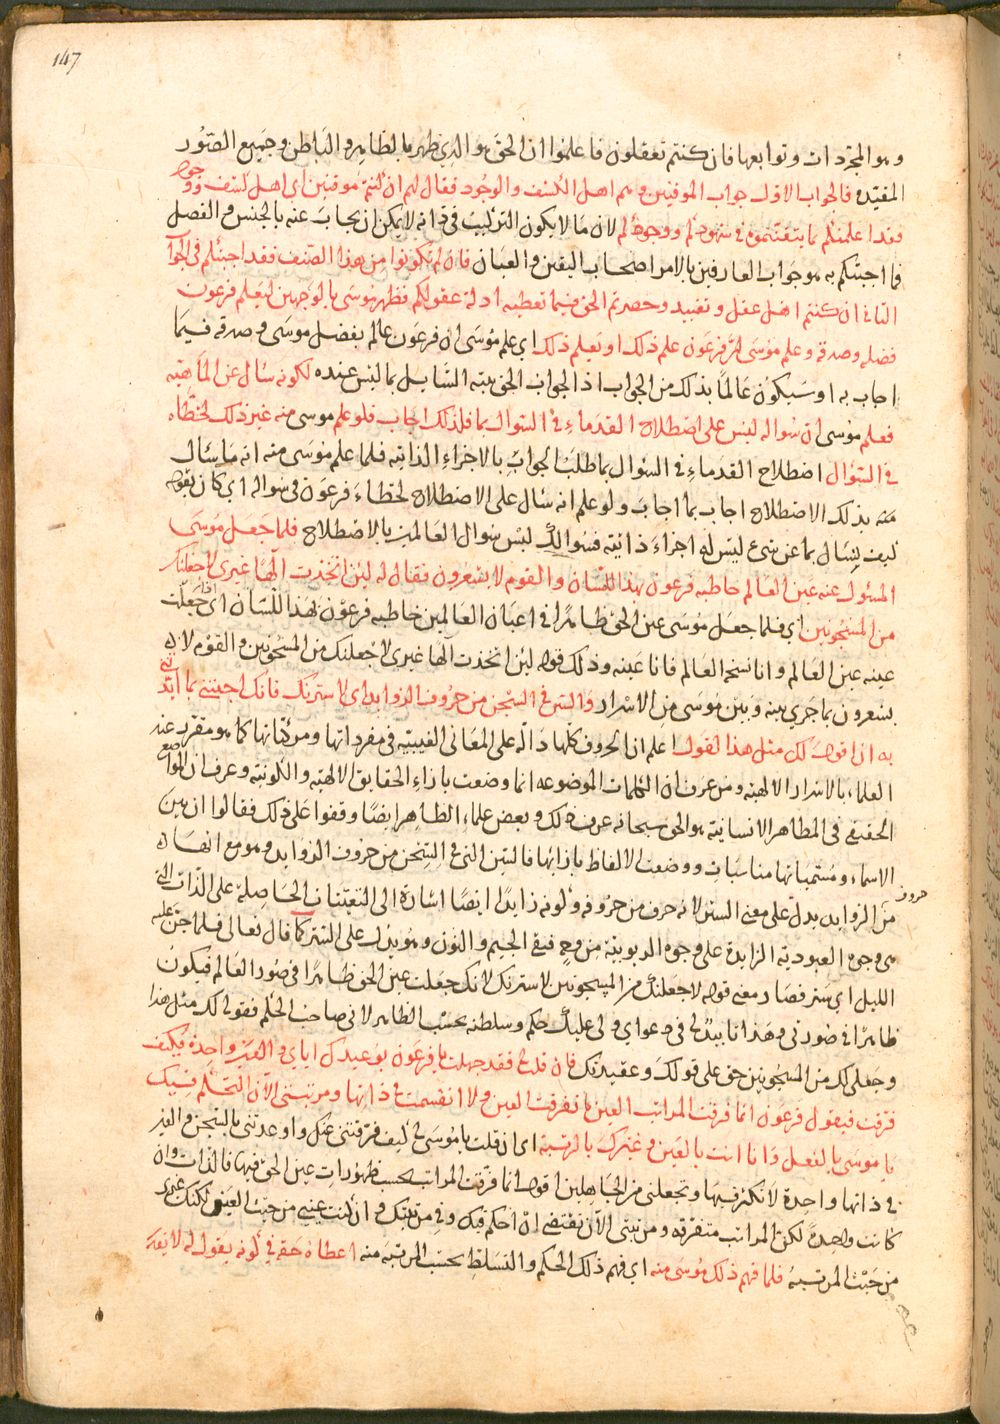 147
وهو المجردات وتوابعها فان كنتم تعقلون فاعلموا ان الحق هو الذي ظهر بالظاهر والباطن وجميع الصور
المقيدة فالجواب الاول جواب الموقنين وهم اهل الكشف والوجود فقال لهم ان كنتم موقنين اى اهل كشف ووجود
فقد اعلمتكم بما تيقنتموه في شهودكم ووجودكم لان ما لا يكون التركيب في ذاته لا يمكن ان يجاب عنه بالجنس والفصل
فما اجبتكم به هو جواب العارفين بالامر اصحاب اليقين والعيان فان لم تكونوا من هذا الصنف فقد اجبتكم في الجواب
الثاني ان كنتم اهل عقل وتقييد وحصرتم الحق فيما تعطيه ادلة عقولكم فظهر موسى بالوجهين ليعلم فرعون
فضله وصدقه وعلم موسى ان فرعون علم ذلك او يعلم ذلك اي علم موسى ان فرعون عالم بفضل موسى وصدقه فيما
اجاب به او سيكون عالما بذلك من الجواب اذ الجواب الحق ينبه السايل بما ليس عنده لكونه سال عن الماهية
فعلم موسى ان سواله ليس على اصطلاح القدماء في السوال بما فلذلك اجاب فلو علم موسى منه غير ذلك لخطاه
في السؤال اصطلاح القدماء في السؤال بما طلب الجواب بالاجزاء الذاتيه فلما علم موسى منه انه ما سال
منه بذلك الاصطلاح اجاب بما اجاب ولو علم انه سال على الاصطلاح لخطاء فرعون في سواله اي كان يقول
كيف يسال بما عن شيء ليس له اجزاء ذاتية فسوالك ليس سوال العالمين بالاصطلاح فلما جعل موسى
المسئول عنه عين العالم خاطبه فرعون بهذا اللسان والقوم لا يشعرون فقال له لئن اتخذت الها غيرى لاجعلنك
من المسجونين اي فلما جعل موسى عين الحق ظاهرا في اعيان العالمين خاطبه فرعون بهذا اللسان اي اذا جعلت
عينه عين العالم وانا نسخة العالم فانا عينه وذلك قوله لئن اتخذت الها غيري لاجعلنك من المسجونين والقوم لا
يشعرون بما جري بينه وبين موسى من الاسرار والسين في السجن من حروف الزوايد اى لاسترنك فانك اجبتني بما ايدتني
به ان اقول لك مثل هذا القول اعلم ان الحروف كلها دالة على المعاني الغيبيه في مفرداتها ومركباتها كما هو مقرر عند
العلماء بالاسرار الالهيه ومن عرف ان الكلمات الموضوعه انما وضعت بازاء الحقايق الالهيه والكونية وعرف ان الواضع
الحقيقي في المظاهر الانسانية هو الحق سبحانه عرف ذلك وبعض علماء الظاهر ايضا وقفوا على ذلك فقالوا ان بين
الاسماء ومسمياتها مناسبات ووضعت الالفاظ بازائها فالسين التي في السجن من حروف الزوايد وهو مع
من الزوايد يدل على معنى الستر لانه حرف من حروفه وكونه زايدا ايضا اشارة الى التعينات الحاصلة على الذات التي
حروف
هي وجوه العبودية الزايدة على وجوه الربوبية من وجه فبقى الجيم والنون وهو يدل على الستر كما قال تعالى فلما جن عليه
الليل اي ستر فصار معنى قوله لاجعلنك من المسجونين لاسترنك لانك جعلت عين الحق ظاهرا في صور العالم فيكون
ظاهرا في صورتي وهذا تاييد لي في دعواي ولى عليك حكم وسلطنه بحسب الظاهر لاني صاحب الحكم فقولي لك مثل هذا
وجعلى لك من المسجونين حق على قولك وعقيدتك فان قلت فقد جهلت يا فرعون بوعيدك اياي والعين واحدة فكيف
فرقت فيقول فرعون انما فرقت المراتب العين ما تفرقت العين ولا انقسمت في ذاتها ومرتبتي الآن التحكم فيك
يا موسى بالفعل وانا انت بالعين وغيرك بالرتبة اي ان قلت يا موسى لي كيف فرقتني عنك واوعدتني بالسجن والعين
في ذاتها واحدة لا تكثر فيها وتجعلني من الجاهلين اقول انما فرقت المراتب بحسب ظهورات عين الحق فيها فالذات وان
كانت واحدة لكن المراتب متفرقه ومرتبتي الآن تقتضي ان احكم فيك وفي مرتبتك وان كنت عيني من حيث العين لكنك غيري
من حيث المرتبة فلما فهم ذلك موسى منه اي فهم ذلك الحكم والتسلط بحسب المرتبة منه اعطاه حقه في كونه يقول له لا تقدر